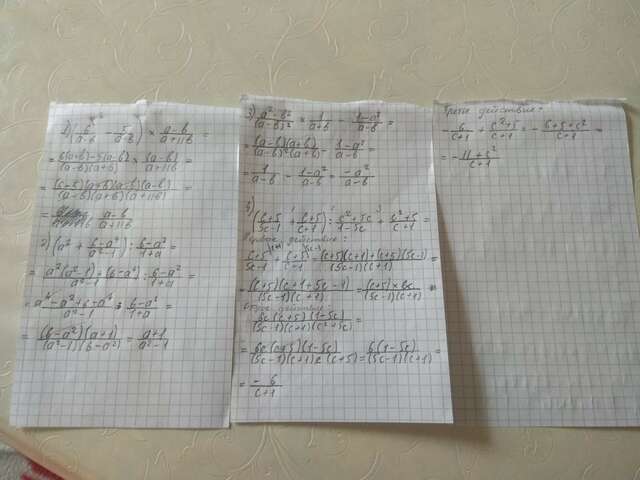 1) (6/(a-b) - 5/(a+b)) × (a-b)/(a+11b) =
= (6(a+b)-5(a-b))/((a-b)(a+b)) × (a-b)/(a+11b) =
= a-b / a+11b
2) (a² + (6-a⁴)/(a²-1)) : (6-a²)/(1+a) =
= (a²(a²-1)+(6-a⁴))/(a²-1) : (6-a²)/(1+a) =
= (a⁴-a²+6-a⁴)/(a²-1) : (6-a²)/(1+a) =
= ((6-a²)(a+1))/((a²-1)(6-a²)) = (a+1)/(a²-1)
3) (a²-b²)/(a-b)² × 1/(a+b) - (1-a²)/(a-b) =
= ((a-b)(a+b))/((a-b)²(a+b)) - (1-a²)/(a-b) =
= 1/(a-b) - (1-a²)/(a-b) = -a²/(a-b)
((c+5)/(5c-1) + (c+5)/(c+1)) : (c²+5c)/(1-5c) + (c²+5)/(c+1) =
Первое действие:
(c+5)/(5c-1) + (c+5)/(c+1) = ((c+5)(c+1)+(c+5)(5c-1))/((5c-1)(c+1)) =
= ((c+5)(c+1+5c-1))/((5c-1)(c+1)) = ((c+5)×6c)/((5c-1)(c+1))
Второе действие:
(6c(c+5)(1-5c))/((5c-1)(c+1)(c²+5c)) =
= (6c(c+5)(1-5c))/((5c-1)(c+1)c(c+5)) = (6(1-5c))/((5c-1)(c+1)) =
= -6/(c+1)
Третье действие:
-6/(c+1) + (c²+5)/(c+1) = -(6+5+c²)/(c+1) =
= -(11+c²)/(c+1)